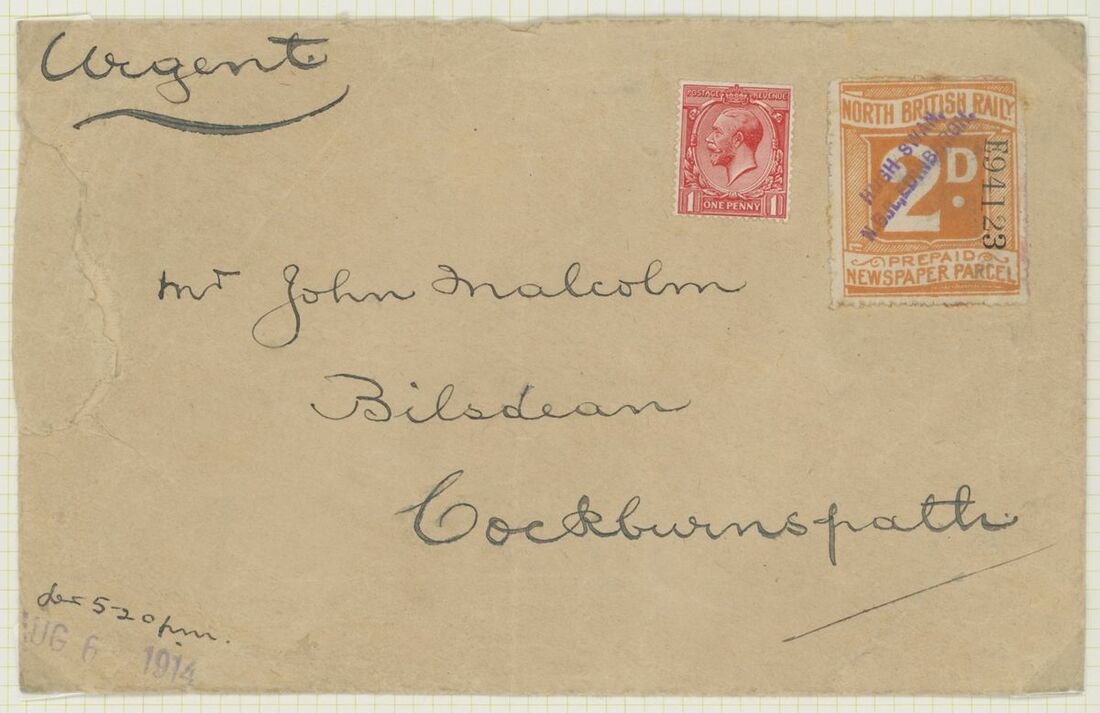 Urgent
POSTAGE REVENUE
1 ONE PENNY 1
NORTH BRITISH RAILY
2D.
E94123
HUGH SWAN,
PREPAID
NEWSPAPER PARCEL
Mr John Malcolm
Bilsdean
Cockburnspath
per 5-20 pm.
AUG 6 1914